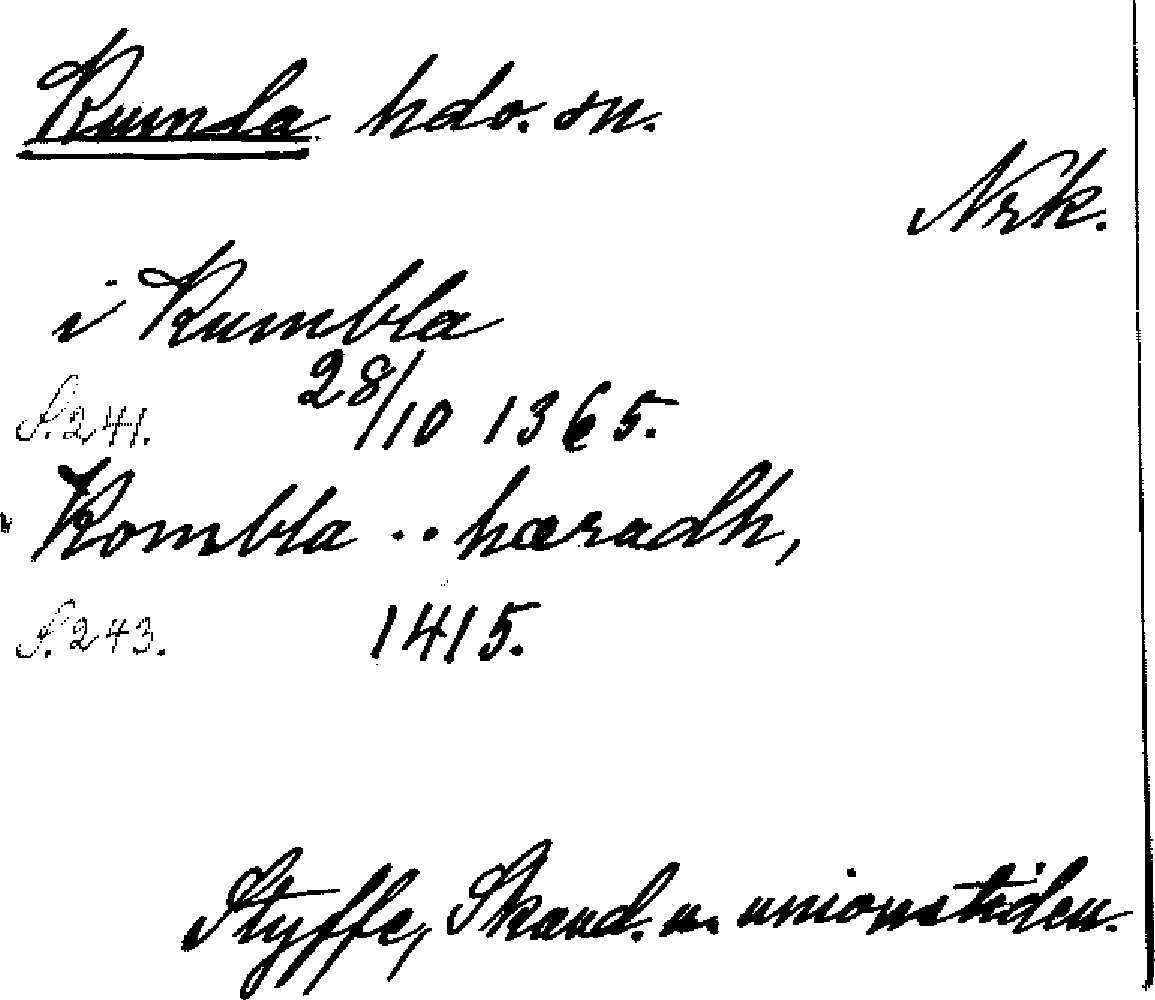 Kumla hdo. sn.
Nrk.
i Kumbla
S. 241. 28/10 1365.
Kombla .. hæradh,
S. 243. 1415.
Styffe, Skand. u. unionstiden.